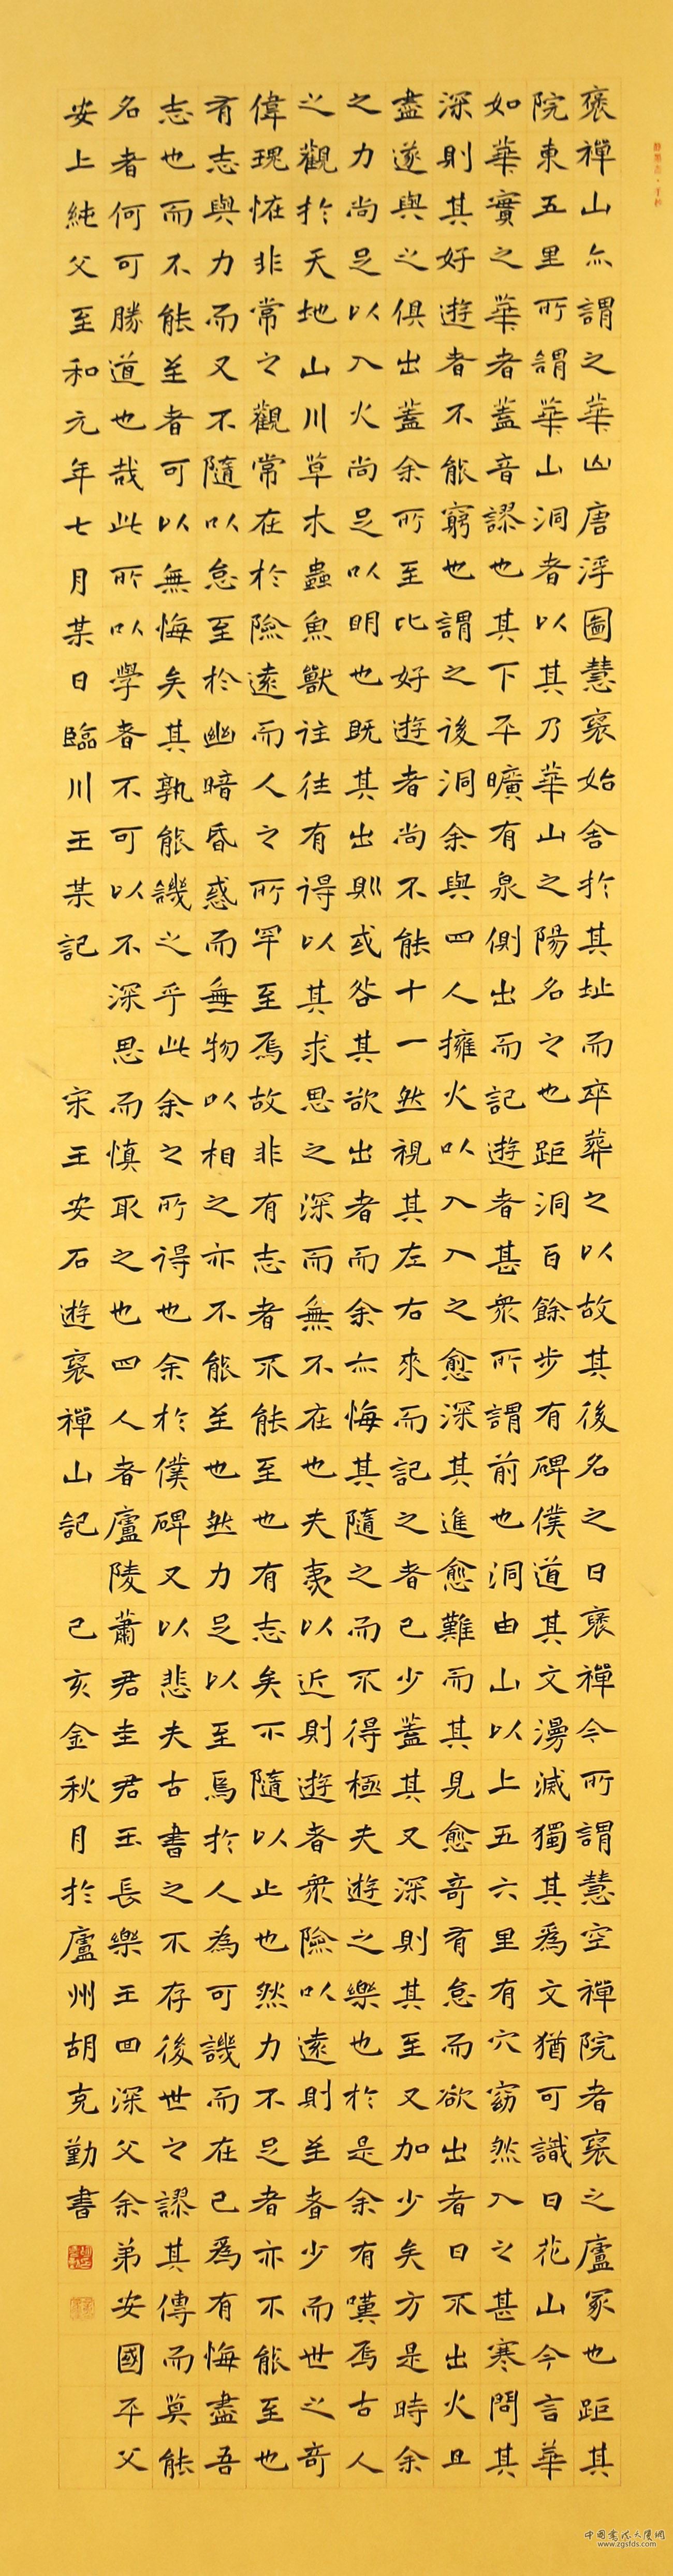 褒禪山亦謂之華山唐浮圖慧褒始舍於其址而卒葬之以故其後名之曰褒禪今所謂慧空禪院者褒之廬冢也距其
院東五里所謂華山洞者以其乃華山之陽名之也距洞百餘步有碑僕道其文漫滅獨其爲文猶可識曰花山今言華
如華實之華者蓋音謬也其下平曠有泉側出而記遊者甚衆所謂前也洞由山以上五六里有穴窈然入之甚寒問其
深則其好遊者不能窮也謂之後洞余與四人擁火以入入之愈深其進愈難而其見愈奇有怠而欲出者曰不出火且
盡遂與之俱出蓋余所至比好遊者尚不能十一然視其左右來而記之者已少蓋其又深則其至又加少矣方是時余
之力尚足以入火尚足以明也既其出則或咎其欲出者而余亦悔其隨之而不得極夫遊之樂也於是余有嘆焉古人
之觀於天地山川草木蟲魚獸往往有得以其求思之深而無不在也夫夷以近則遊者衆險以遠則至者少而世之奇
偉瑰怪非常之觀常在於險遠而人之所罕至焉故非有志者不能至也有志矣不隨以止也然力不足者亦不能至也
有志與力而又不隨以怠至於幽暗昏惑而無物以相之亦不能至也然力足以至焉於人為可譏而在己爲有悔盡吾
志也而不能至者可以無悔矣其孰能譏之乎此余之所得也余於僕碑又以悲夫古書之不存後世之謬其傳而莫能
名者何可勝道也哉此所以學者不可以不深思而慎取之也四人者廬陵蕭君圭君玉長樂王回深父余弟安國平父
安上純父至和元年七月某日臨川王某記 宋王安石遊褒禪山記 己亥金秋月於廬州胡克勤書
中国书法大厦网
www.zgsfds.com